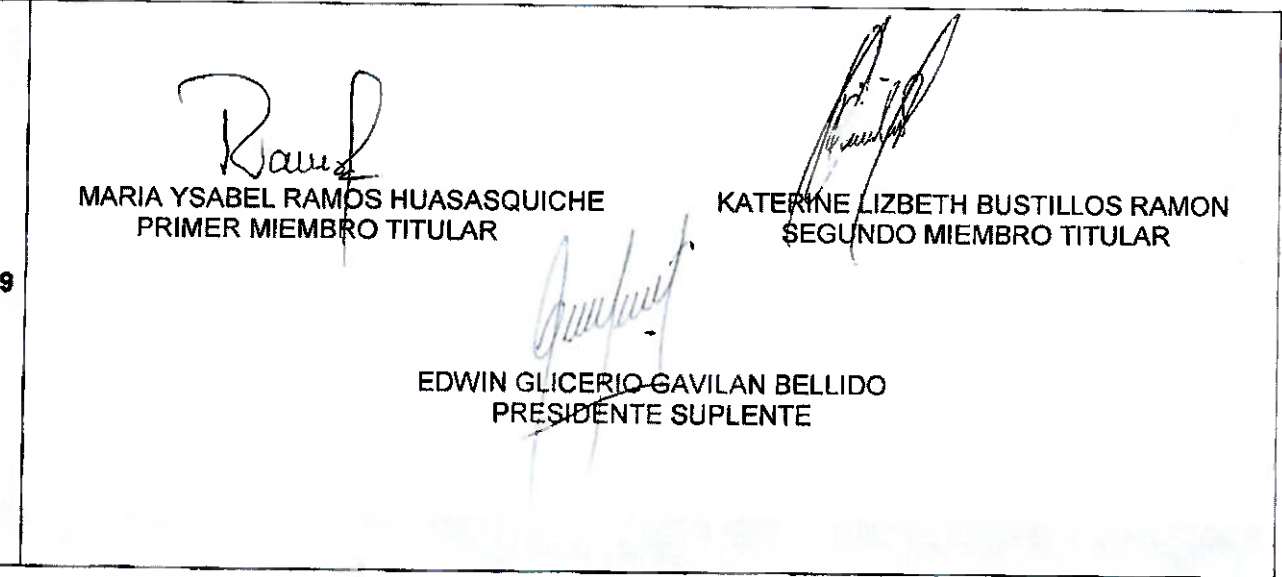 MARIA YSABEL RAMOS HUASASQUICHE
PRIMER MIEMBRO TITULAR
KATERINE LIZBETH BUSTILLOS RAMON
SEGUNDO MIEMBRO TITULAR
9
EDWIN GLICERIO GAVILAN BELLIDO
PRESIDENTE SUPLENTE